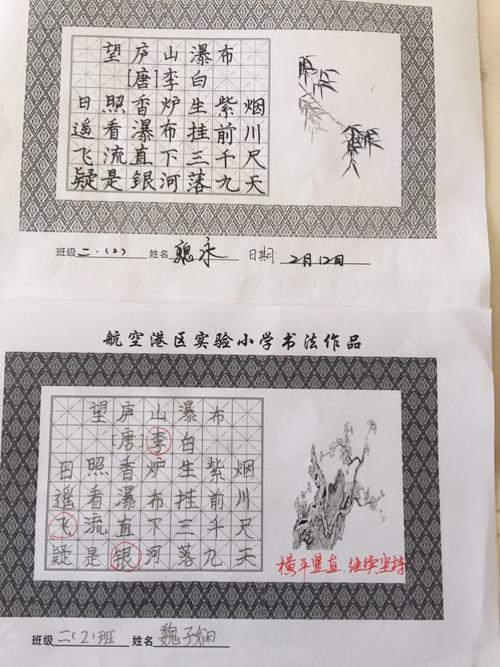 望庐山瀑布
[唐]李白
日照香炉生紫烟
遥看瀑布挂前川
飞流直下三千尺
疑是银河落九天
班级二.(2) 姓名魏永 日期 2月12日
航空港区实验小学书法作品
望庐山瀑布
[唐]李白
日照香炉生紫烟
遥看瀑布挂前川
飞流直下三千尺
疑是银河落九天
横平竖直.继续坚持
班级二(2)班 姓名魏子娴